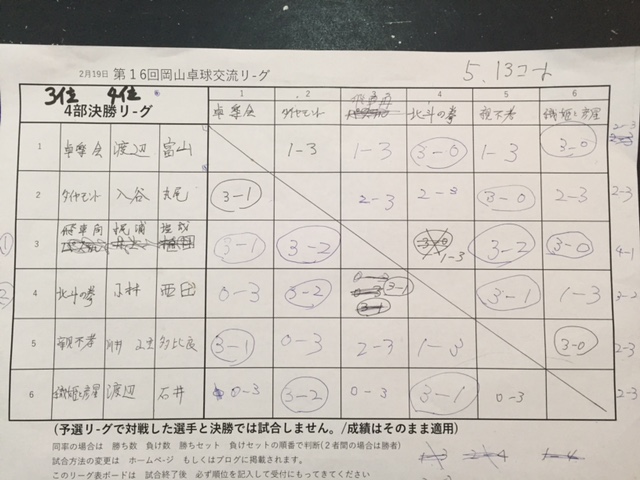 2月19日 第16回岡山卓球交流リーグ
5.13コート
3位 4位
4部決勝リーグ
1 2 3 4 5 6
卓楽会 ダイヤモンド 飛車角 北斗の拳 親不孝 織姫と彦星
1 卓楽会 渡辺 富山 1-3 1-3 3-0 1-3 3-0 2-3
2 ダイヤモンド 入谷 3-1 2-3 2-3 3-0 2-3 2-3
① 3 飛車角 3-1 3-2 1-3 3-2 3-0 4-1
② 4 北斗の拳 小林 西田 0-3 3-2 3-1 3-1 1-3 3-2
5 親不孝 多比良 3-1 0-3 2-3 1-3 3-0 2-3
6 織姫と彦星 渡辺 石井 0-3 3-2 0-3 3-1 0-3 2-3
(予選リーグで対戦した選手と決勝では試合しません。/成績はそのまま適用)
同率の場合は 勝ち数 負け数 勝ちセット 負けセットの順番で判断(2者間の場合は勝者)
試合方法の変更は ホームページ もしくはブログに掲載されます。
このリーグ表ボードは 試合終了後 必ず順位を記入して受付にもってきてください